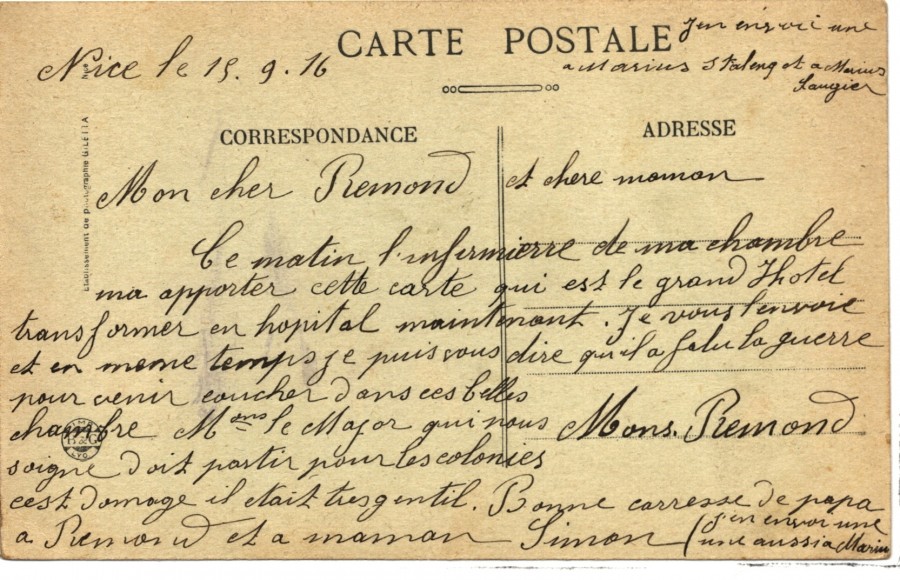 CARTE POSTALE
J'en envoi une
a Marius Staleng et a Marius
Laugier
Nice le 15.9.16
CORRESPONDANCE
ADRESSE
Etablissement de photographie GILETTA
Mon cher Remond et chere maman
Ce matin l'infirmierre de ma chambre
ma apporter cette carte qui est le grand Hotel
transformer en hopital maintenant. Je vous l'envoie
et en meme temps je puis vous dire qu'il a falu la guerre
pour venir coucher dans ces belles
chambre Mans le Major qui nous
soigne doit partir pour les colonies
cest domage il etait tres gentil. Bonne carresse de papa
a Remond et a maman Simon (J'en envoi une
une aussi a Marius
Mons. Remond